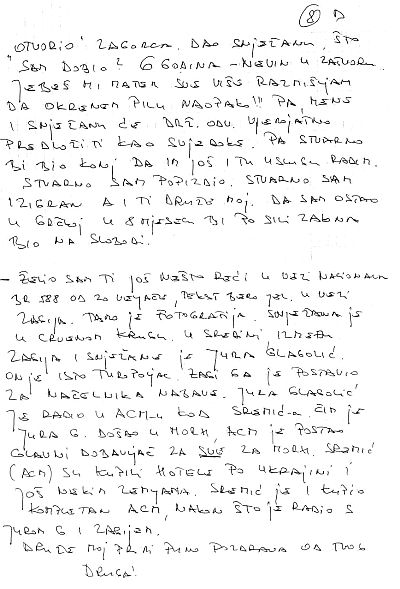 8 D
"OTVORIO" ZAGORCA. DAO SNJEŽANU, ŠTO
SAM DOBIO? 6 GODINA - NEVIN U ZATVORU.
JEBEŠ MI MATER SVE VIŠE RAZMIŠLJAM
DA OKRENEM PILU NAOPAKO!!! PA, MENE
I SNJEŽANU ĆE DRŽ. ODV. VJEROJATNO
PREDLOŽITI KAO SVJEDOKE. PA STVARNO
BI BIO KONJ DA IM JOŠ I TU USLUGU RADIM.
STVARNO SAM POPIZDIO. STVARNO SAM
IZIGRAN A I TI DRUŽE MOJ. DA SAM OSTAO
U GRČKOJ U 8 MJESECI BI PO SILI ZAKONA
BIO NA SLOBODI.
- ŽELIO SAM TI JOŠ NEŠTO REĆI U VEZI NACIONALA
BR 588 OD 20 VELJAČE, TEKST BERO JEL. U VEZI
ZAGIJA. TAMO JE FOTOGRAFIJA. SNJEŽANA JE
U CRVENOM KRUGU. U SREDINI IZMEĐU
ZAGIJA I SNJEŽANE JE JURA GLAGOLIĆ.
ON JE ISTO TUROPOLJAC. ZAGI GA JE POSTAVIO
ZA NAČELNIKA NABAVE. JURA GLAGOLIĆ
JE RADIO U ACM-U KOD SREMIĆ-A. ČIM JE
JURA G. DOŠAO U MORH, ACM JE POSTAO
GLAVNI DOBAVLJAČ ZA SVE ZA MORH. SREMIĆ
(ACM) SU KUPILI HOTELE PO UKRAJINI I
JOŠ NEKIM ZEMLJAMA. SREMIĆ JE I KUPIO
KOMPLETAN ACM, NAKON ŠTO JE RADIO S
JURA G I ZAGIJEM.
DRUŽE MOJ PRIMI PUNO POZDRAVA OD TVOG
DRUGA!